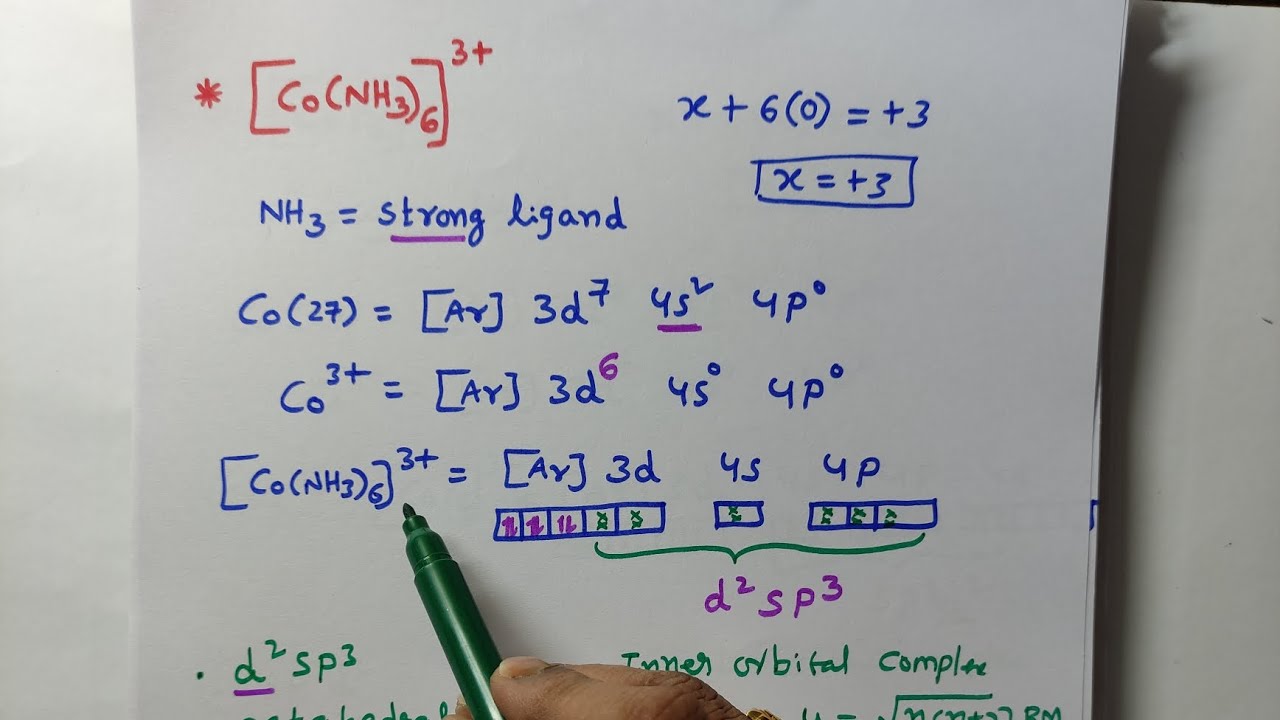 * [Co(NH₃)₆]³⁺
x + 6(0) = +3
x = +3
NH₃ = strong ligand
Co(27) = [Ar] 3d⁷ 4s² 4p⁰
Co³⁺ = [Ar] 3d⁶ 4s⁰ 4p⁰
[Co(NH₃)₆]³⁺ = [Ar] 3d 4s 4p
d²sp³
. d²sp³
Inner orbital complex